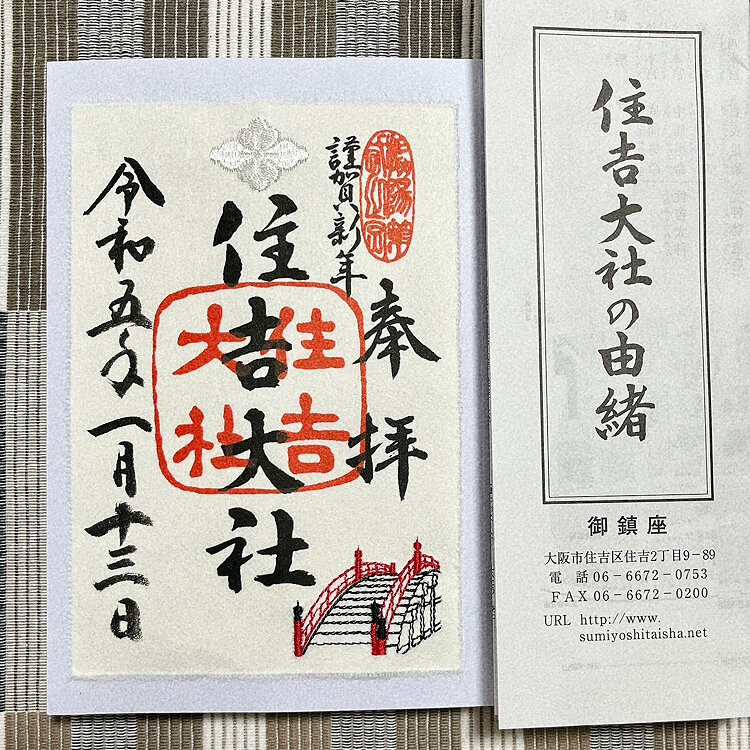 謹賀新年
奉拝
住吉大社
住吉大社
令和五年一月十三日
住吉大社の由緒
御鎮座
大阪市住吉区住吉2丁目9−89
電話 06−6672−0753
FAX 06−6672−0200
URL http://www.
sumiyoshitaisha.net